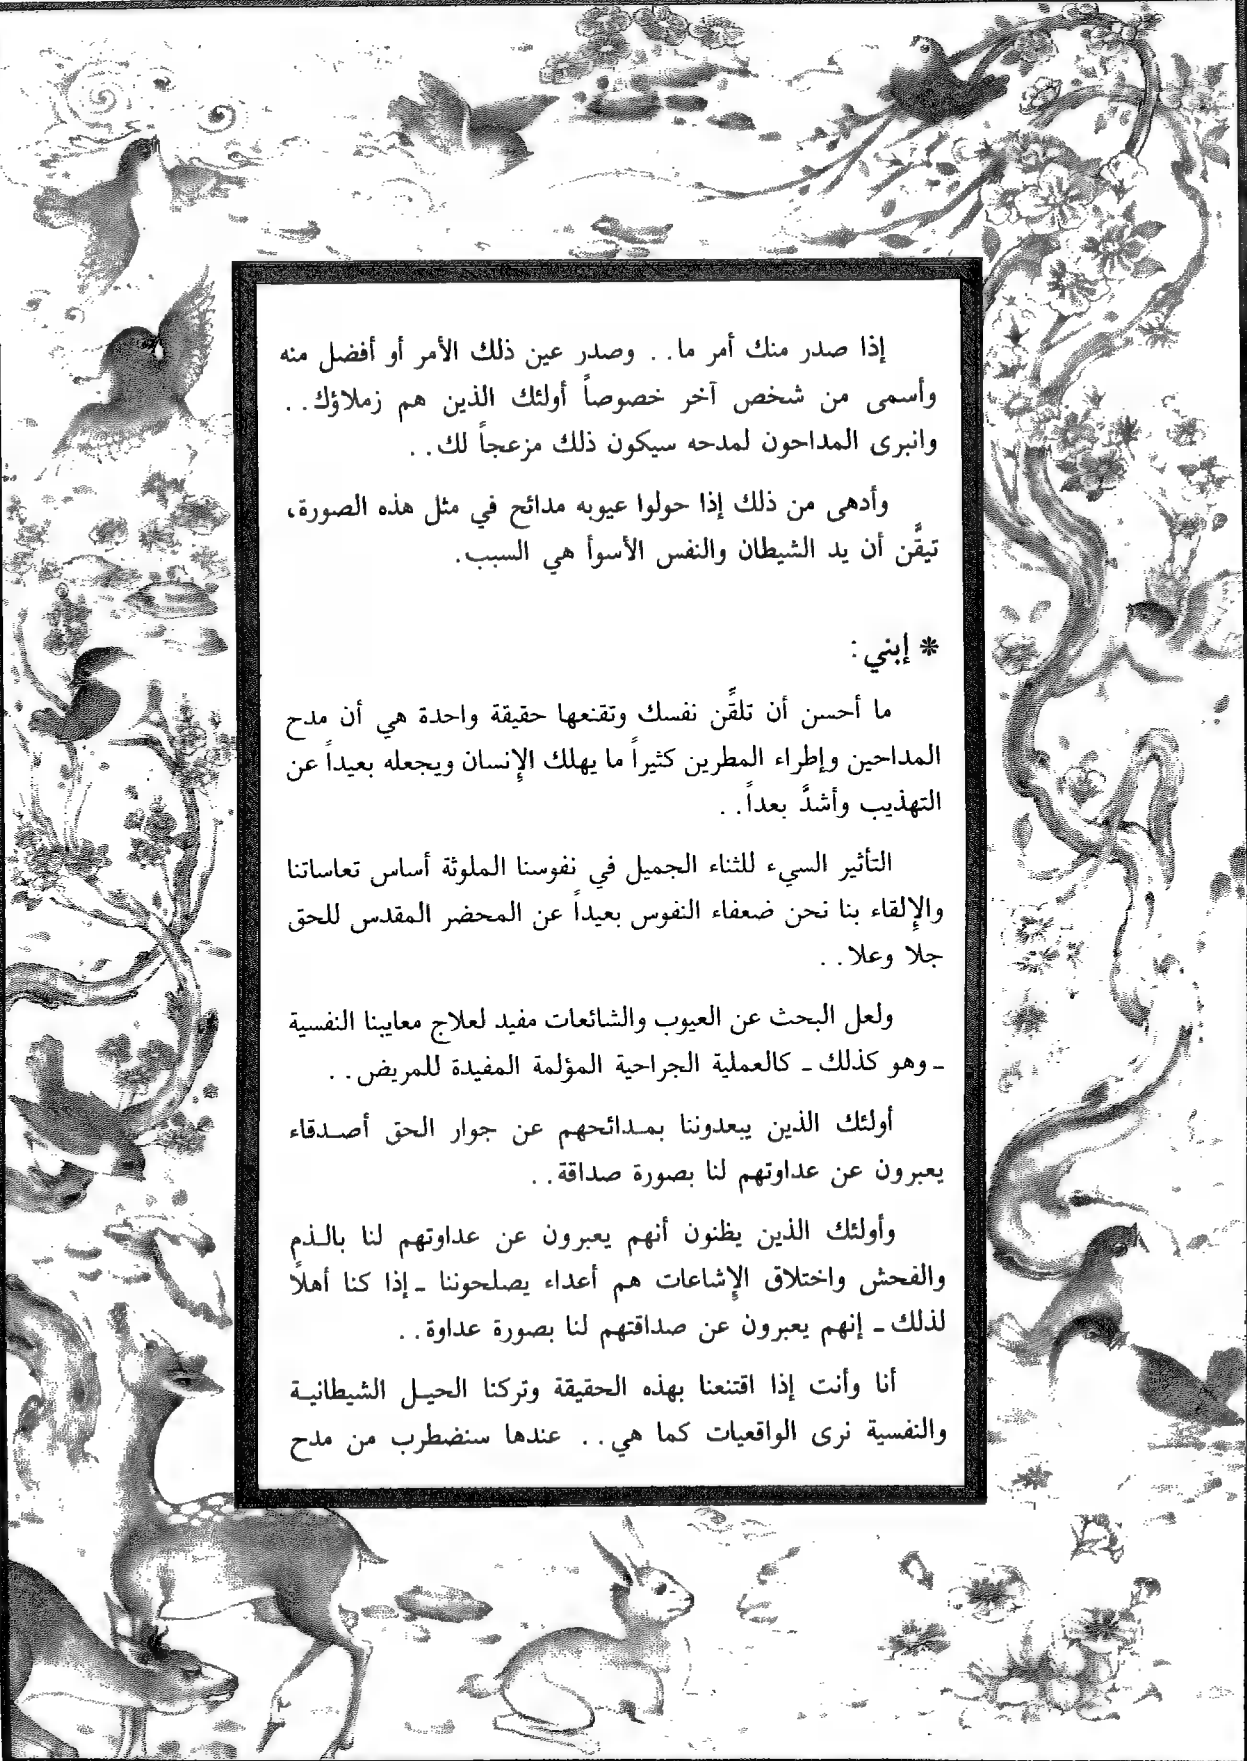 إذا صدر منك أمر ما.. وصدر عين ذلك الأمر أو أفضل منه
وأسمى من شخص آخر خصوصاً أولئك الذين هم زملاؤك..
وانبرى المداحون لمدحه سيكون ذلك مزعجاً لك..
وأدهى من ذلك إذا حولوا عيوبه مدائح في مثل هذه الصورة،
تيقَّن أن يد الشيطان والنفس الأسوأ هي السبب.
* إبني:
ما أحسن أن تلقِّن نفسك وتقنعها حقيقة واحدة هي أن مدح
المداحين وإطراء المطرين كثيراً ما يهلك الإنسان ويجعله بعيداً عن
التهذيب وأشدَّ بعداً..
التأثير السيء للثناء الجميل في نفوسنا الملوثة أساس تعاساتنا
والإلقاء بنا نحن ضعفاء النفوس بعيداً عن المحضر المقدس للحق
جلا وعلا..
ولعل البحث عن العيوب والشائعات مفيد لعلاج معايبنا النفسية
ـ وهو كذلك ـ كالعملية الجراحية المؤلمة المفيدة للمريض..
أولئك الذين يبعدوننا بمـدائحهم عن جوار الحق أصـدقاء
يعبرون عن عداوتهم لنا بصورة صداقة..
وأولئك الذين يظنون أنهم يعبرون عن عداوتهم لنا بالـذم
والفحش واختلاق الإشاعات هم أعداء يصلحوننا ـ إذا كنا أهلاً
لذلك ـ إنهم يعبرون عن صداقتهم لنا بصورة عداوة..
أنا وأنت إذا اقتنعنا بهذه الحقيقة وتركنا الحيـل الشيطانيـة
والنفسية نرى الواقعيات كما هي.. عندها سنضطرب من مدح